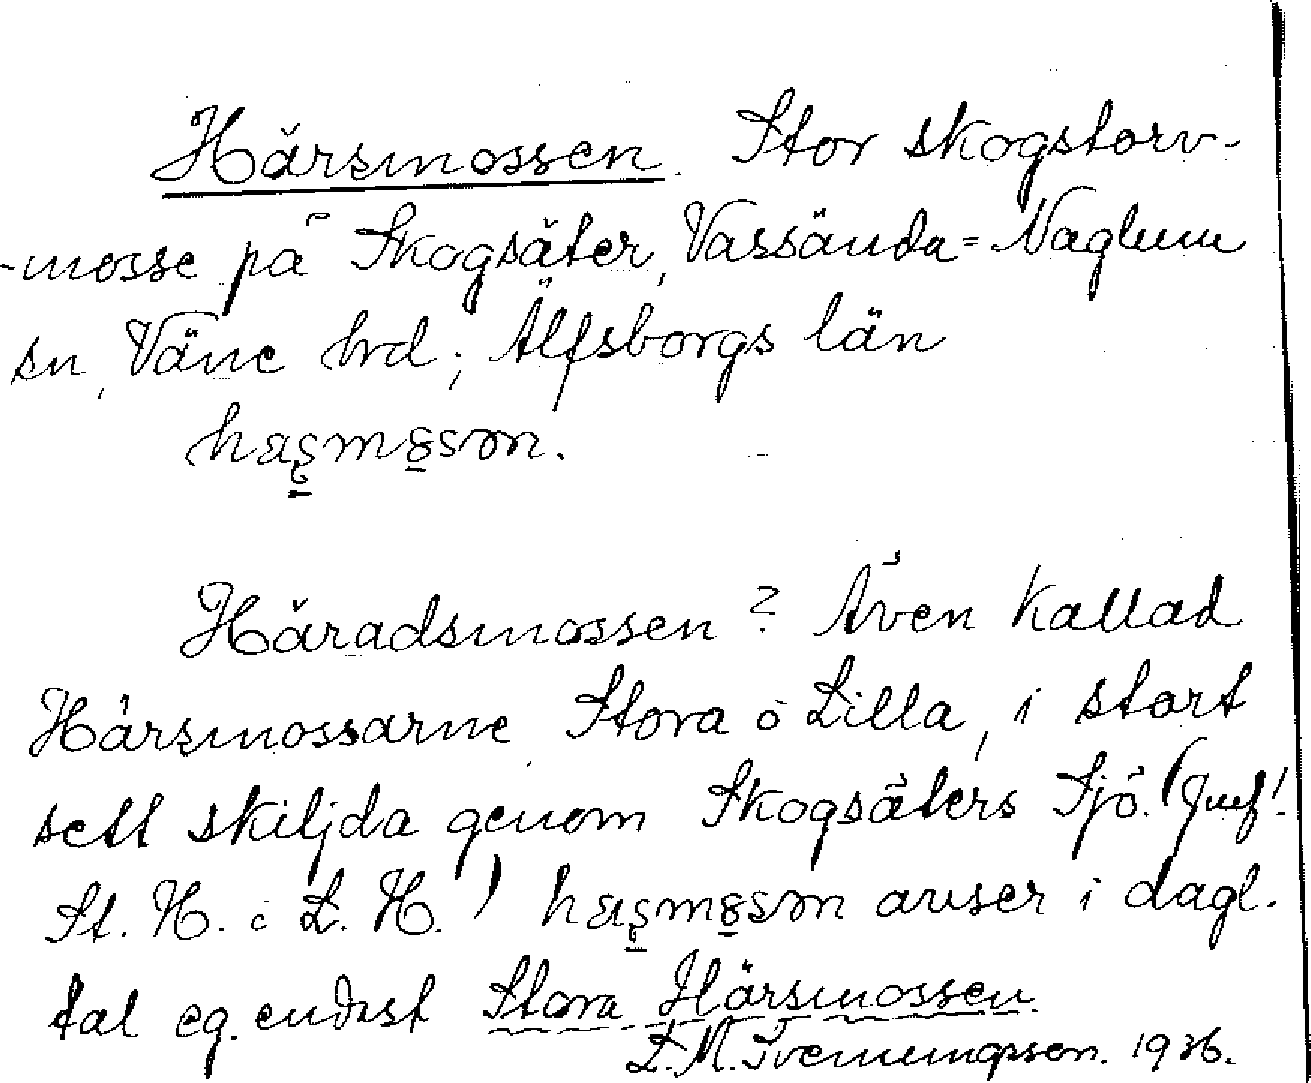 Härsmossen. Stor skogstorv-
-mosse på Skogsäter, Vassända=Naglum
sn, Väne hrd; Älfsborgs län
Häradsmossen? Även kallad
Härsmossarne Stora o Lilla, i stort
sett skiljda genom Skogsäters Sjö. (Jmf!
St. H. o L. H.) avser i dagl.
tal eg. endast Stora Härsmossen.
L. M. 1936.